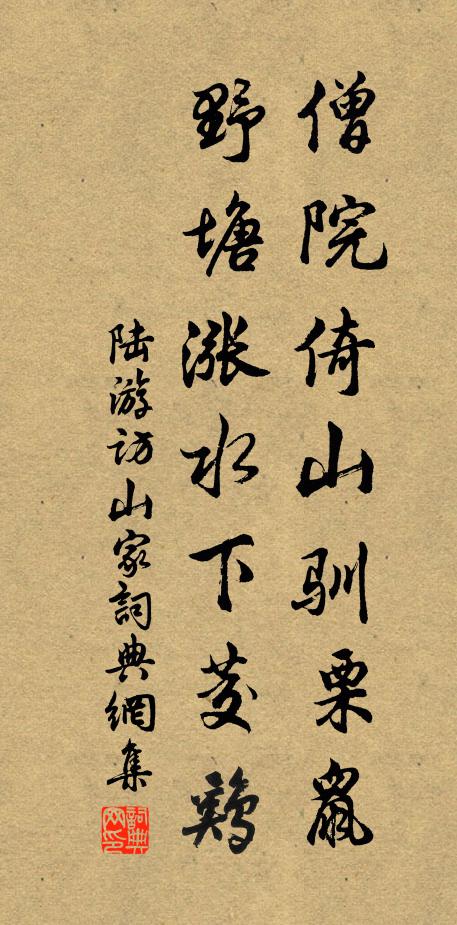 僧院倚山馴栗鼠
野塘漲水下茭鷄
陆游访山家詞典網集
詞典网印